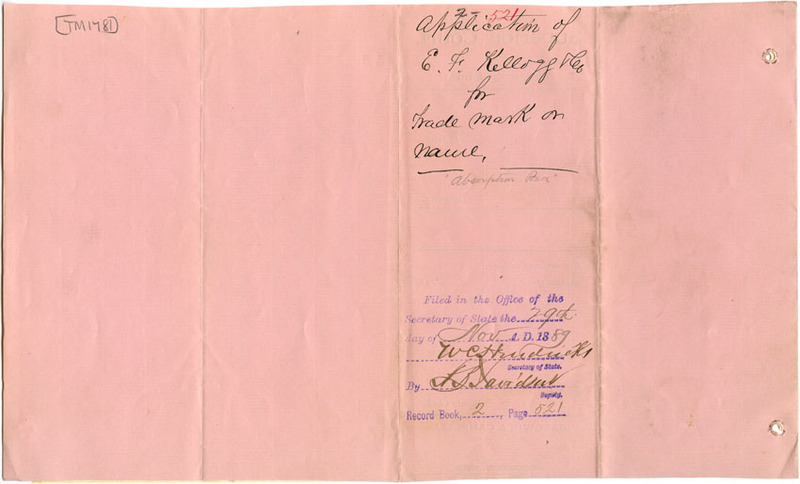 TM1781
2-521
Application of
E. F. Kellogg & Co
for
trade mark or
name.
"Absorption
Filed in the Office of the
Secretary of State the 29th
day of Nov A. D. 1889
W C Hendricks
Secretary of State.
By
Deputy.
Record Book, 2, Page 521